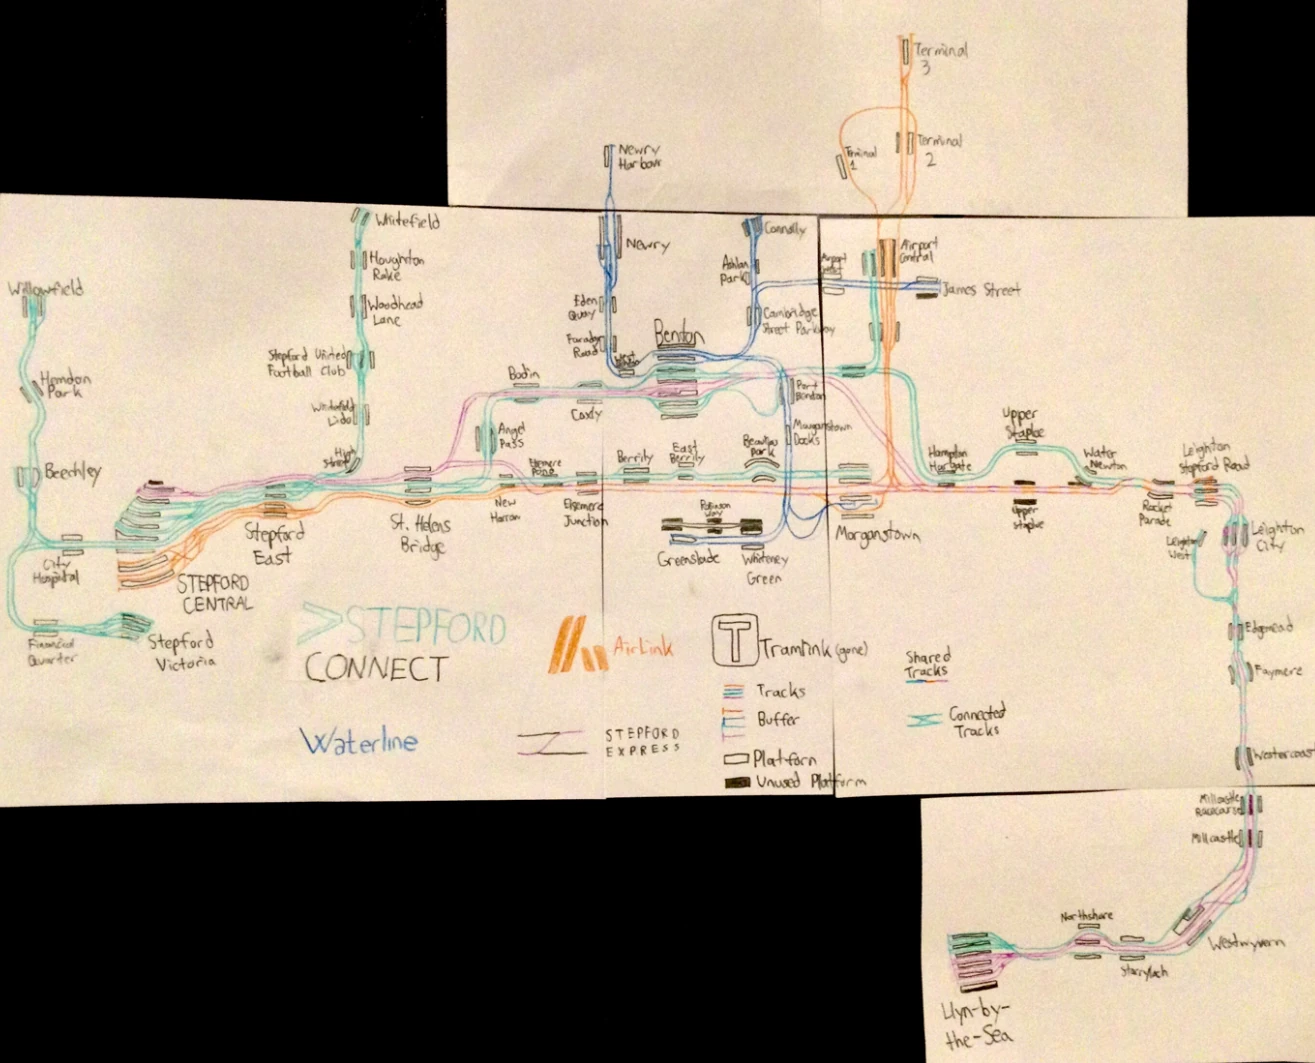 Terminal
3
Terminal
2
Terminal
1
Newry
Harbour
Whitefield
Newry
Connolly
Airport
Central
Houghton
Rake
Ashlan
Park
Airport
West
Willowfield
James Street
Woodhead
Lane
Eden
Quay
Cambridge
Street Parkway
Benton
Faraday
Road
West
Benton
Stepford United
Football Club
Hemdon
Park
Bodin
Coxly
Port
Benton
Whitefield
Lido
Angel
Pass
Morganstown
Docks
Upper
Staploe
High
Street
Elsemere
Pond
Berrily
East
Berrily
Beaulieu
Park
Hampton
Hargate
Water
Newton
Leighton
Stepford Road
Beechley
New
Harrow
Elsemere
Junction
Robinson
Way
Upper
Staploe
Rocket
Parade
Stepford
East
St. Helens
Bridge
Morganstown
Leighton
West
Leighton
City
City
Hospital
Greenslade
Whiteney
Green
STEPFORD
CENTRAL
Financial
Quarter
Stepford
Victoria
STEPFORD
CONNECT
AirLink
T
Tramlink (gone)
Shared
Tracks
Edgemead
Faymere
Tracks
Buffer
Connected
Tracks
Waterline
STEPFORD
EXPRESS
Platform
Unused Platform
Westercoast
Millcastle
Racecourse
Millcastle
Northshore
Westwyvern
Starryloch
Llyn-by-
the-Sea